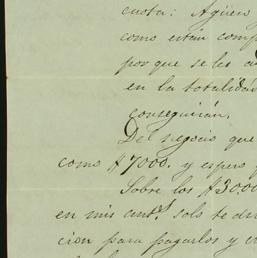 cuota: Agüero
como están comp
por que se les a
en la totalidad
conseguirán.
Del negocio que
como $7000. y espero
Sobre los $3000
en mis cart.s solo te di
cion para pagarlos y c